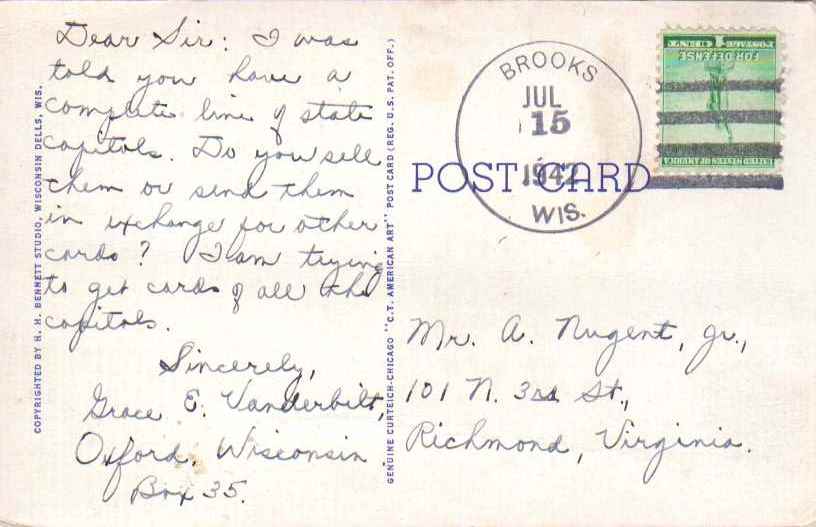 Dear Sir: I was
told you have a
complete line of state
capitols. Do you sell
them or send them
in exchange for other
cards? I am trying
to get cards of all the
capitols.
Sincerely,
Grace E. Vanderbilt,
Oxford, Wisconsin
Box 35.
COPYRIGHTED BY H. H. BENNETT STUDIO, WISCONSIN DELLS, WIS.
GENUINE CURTEICH-CHICAGO "C.T. AMERICAN ART" POST CARD (REG. U.S. PAT. OFF.)
BROOKS
JUL
15
1942
WIS.
POST CARD
UNITED STATES OF AMERICA
FOR DEFENSE
POSTAGE 1 CENT
Mr. A. Nugent, Jr.,
101 N. 3rd St.,
Richmond, Virginia.